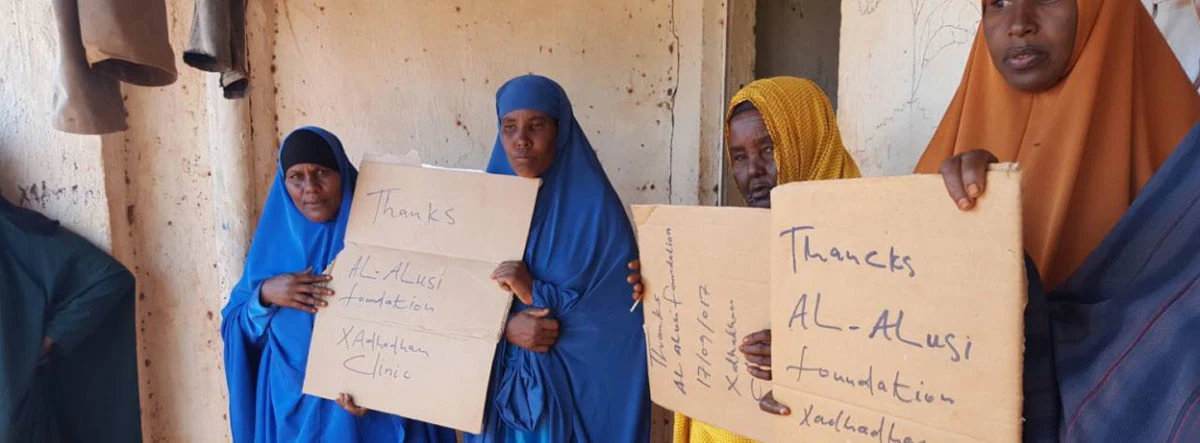 Thanks
AL-ALusi
foundation
XAdhadhan
Clinic
Thanks
AL ALusi foundation
17/09/017
Xadhadhan
Thancks
AL-ALusi
foundation
Xadhadhan